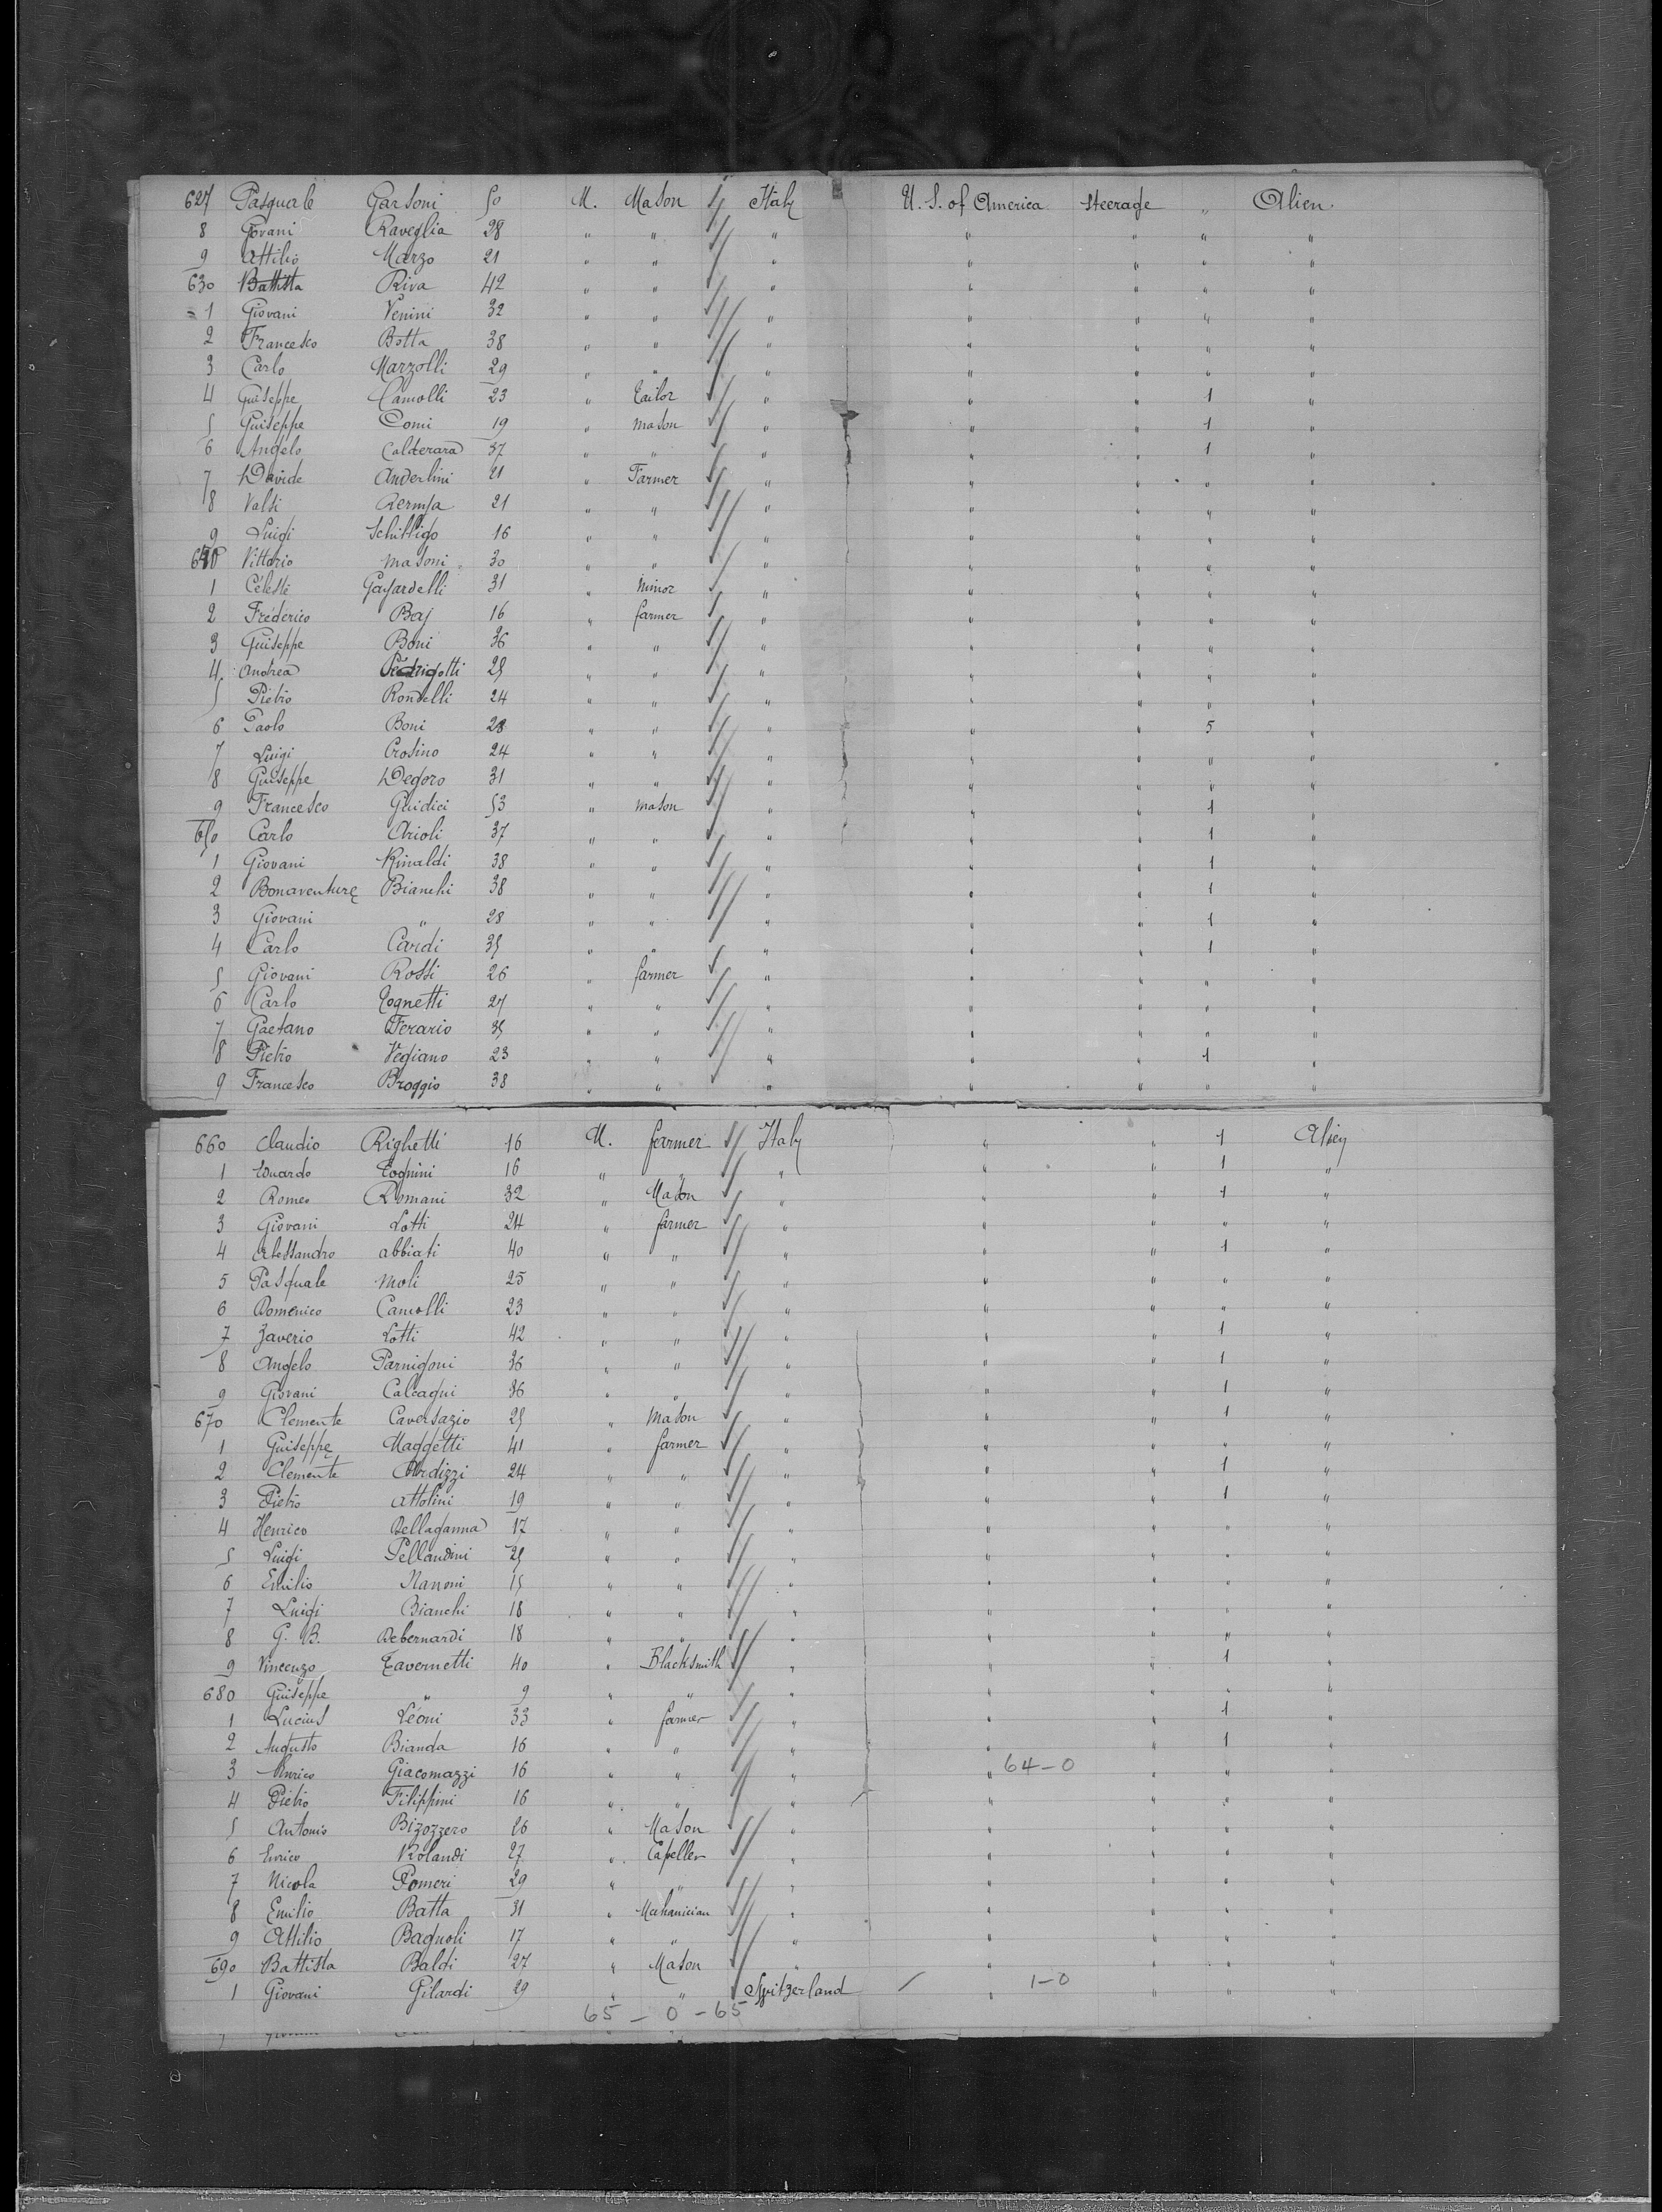 627 Pasquale Garsoni 50 M. Mason Italy U. S. of America steerage " Alien
8 Govani Raveglia 28 " " " " " " "
9 Attilio Marzo 21 " " " " " " "
630 Battista Riva 42 " " " " " " "
1 Giovani Venini 32 " " " " " " "
2 Francesco Botta 38 " " " " " " "
3 Carlo Marzolli 29 " " " " " " "
4 Guiseppe Camolli 23 " Tailor " " " 1 "
5 Guiseppe Comi 19 " mason " " " 1 "
6 Angelo Calderara 37 " " " " " 1 "
7 Davide Anderlini 21 " Farmer " " " " "
8 Valsi 21 " " " " " " "
9 Luigi 16 " " " " " " "
640 Vittorio Masoni 30 " " " " " " "
1 Céleste Gagardelli 31 " minor " " " " "
2 Fréderico Baj 16 " farmer " " " " "
3 Guiseppe Boni 36 " " " " " " "
4 Andrea Pedrigotti 25 " " " " " " "
5 Piétro Rondelli 24 " " " " " " "
6 Paolo Boni 28 " " " " " 5 "
7 Luigi Crosino 24 " " " " " " "
8 Guiseppe Degoro 31 " " " " " " "
9 Francesco Guidici 53 " mason " " " 1 "
650 Carlo Arioli 37 " " " " " 1 "
1 Giovani Rinaldi 38 " " " " " 1 "
2 Bonaventure Bianchi 38 " " " " " 1 "
3 Giovani " 28 " " " " " 1 "
4 Carlo Cardi 35 " " " " " 1 "
5 Giovani Rossi 26 " farmer " " " " "
6 Carlo Tognetti 27 " " " " " " "
7 Gaetano Ferario 35 " " " " " " "
8 Piétro Vegiano 23 " " " " " 1 "
9 Francesco Broggio 38 " " " " " " "
660 Claudio Righetti 16 M. farmer Italy " " 1 Alien
1 Eduardo Tognini 16 " " " " " 1 "
2 Romeo Romani 32 " Mason " " " 1 "
3 Giovani Lotti 24 " farmer " " " " "
4 Alessandro abbiati 40 " " " " " 1 "
5 Pasquale Moli 25 " " " " " " "
6 Domenico Camolli 23 " " " " " " "
7 Zaverio Lotti 42 " " " " " 1 "
8 Angelo Parnigoni 36 " " " " " 1 "
9 Giovani Calcagni 36 " " " " " 1 "
670 Clemente Caversazio 25 " Mason " " " 1 "
1 Guiseppe Maggetti 41 " farmer " " " " "
2 Clemente Ardizzi 24 " " " " " 1 "
3 Piétro Attolini 19 " " " " " 1 "
4 Henrico Dellaganna 17 " " " " " " "
5 Luigi Pellandini 25 " " " " " " "
6 Emilio Nanoni 15 " " " " " " "
7 Luigi Bianchi 18 " " " " " " "
8 G. B. Debernardi 18 " " " " " " "
9 Vincenzo Tavernetti 40 " Blacksmith " " " 1 "
680 Guiseppe " 9 " " " " " " "
1 Lucius Léoni 33 " farmer " " " 1 "
2 Augusto Bianda 16 " " " " " 1 "
3 Enrico Giacomazzi 16 " " " " 64-0 " " "
4 Piétro Filippini 16 " " " " " " "
5 Antonio Bizozzero 26 " Mason " " " " "
6 Enrico Rolandi 27 " Capeller " " " " "
7 Nicola Pomeri 29 " " " " " " "
8 Emilio Batta 31 " Mechanician " " " " "
9 Attilio Bagnoli 17 " " " " " " "
690 Battista Baldi 27 " Mason " " " " "
1 Giovani Gilardi 29 " " Switzerland " 1-0 " " "
65 - 0 - 65